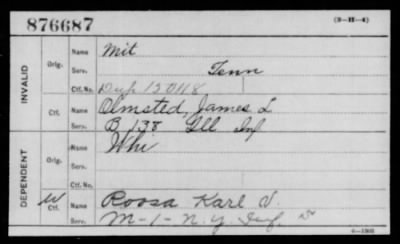 876687 (3-H-4)
INVALID
Orig. Name Mit
Serv. Tenn
Ctf. No. Dup 120118
Ctf. Name Olmsted, James L
Serv. B 138 Ill Inf
DEPENDENT
Orig. Name Whi
Serv.
Ctf. No.
W Ctf. Name Roosa Karl V.
Serv. M-1-N.Y. Inf.